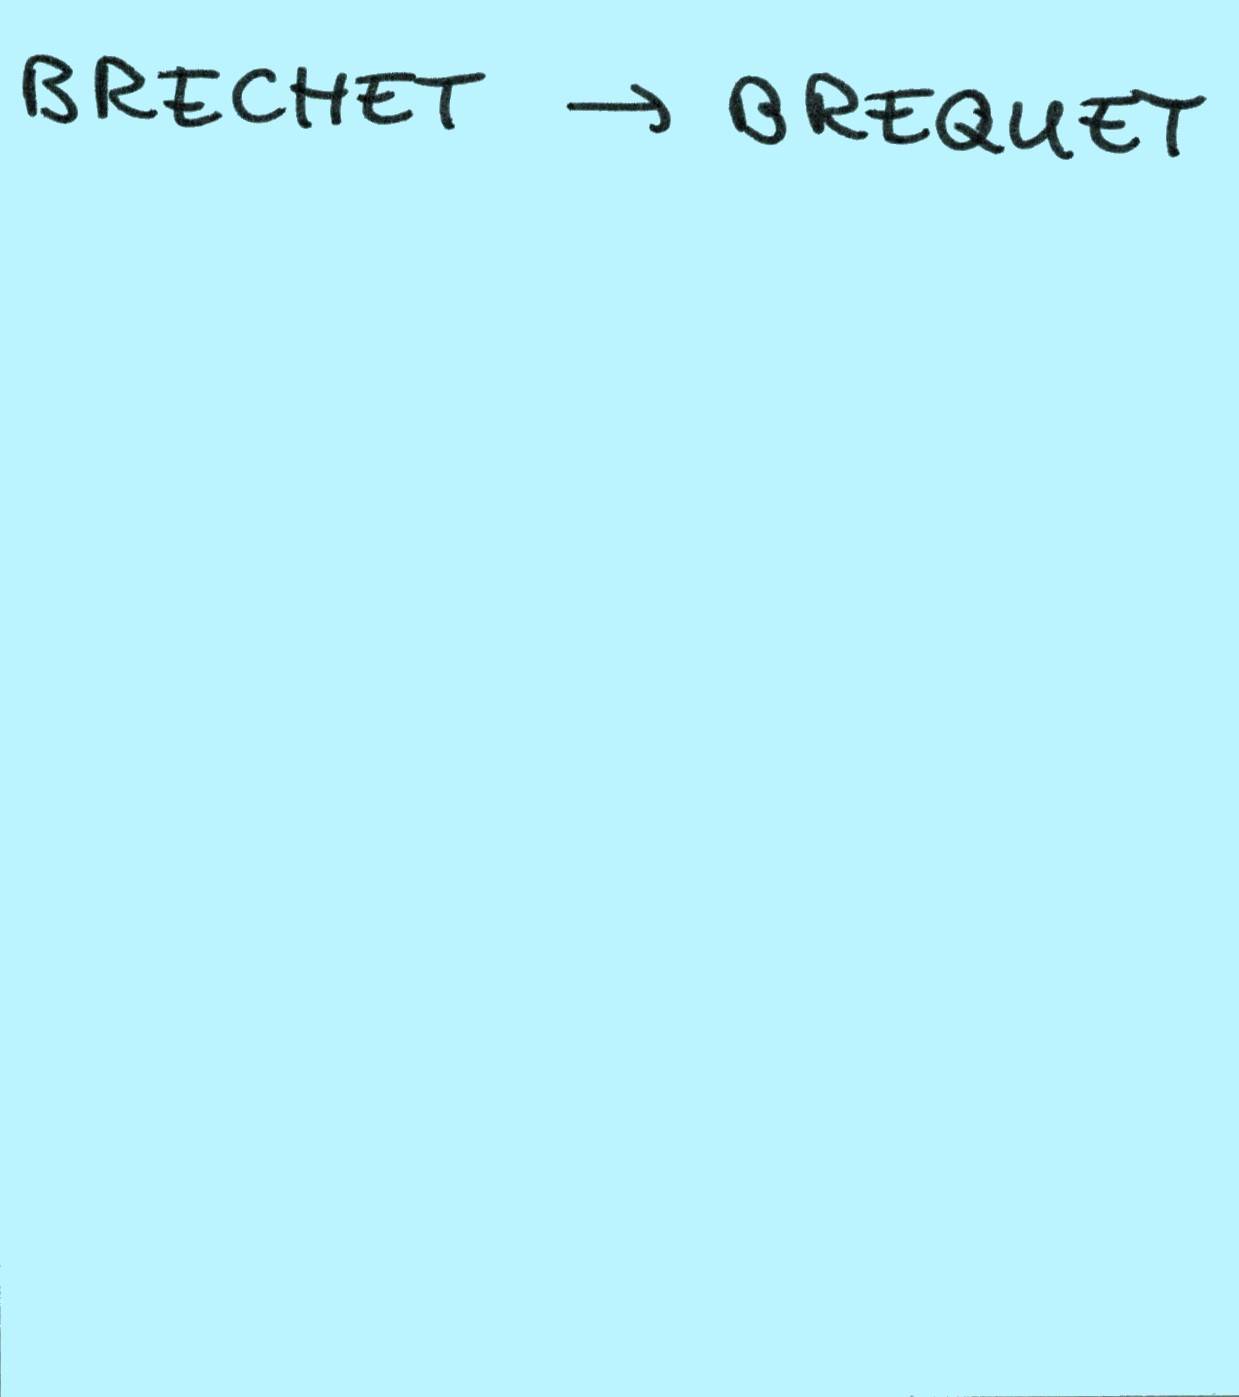 BRECHET → BREQUET